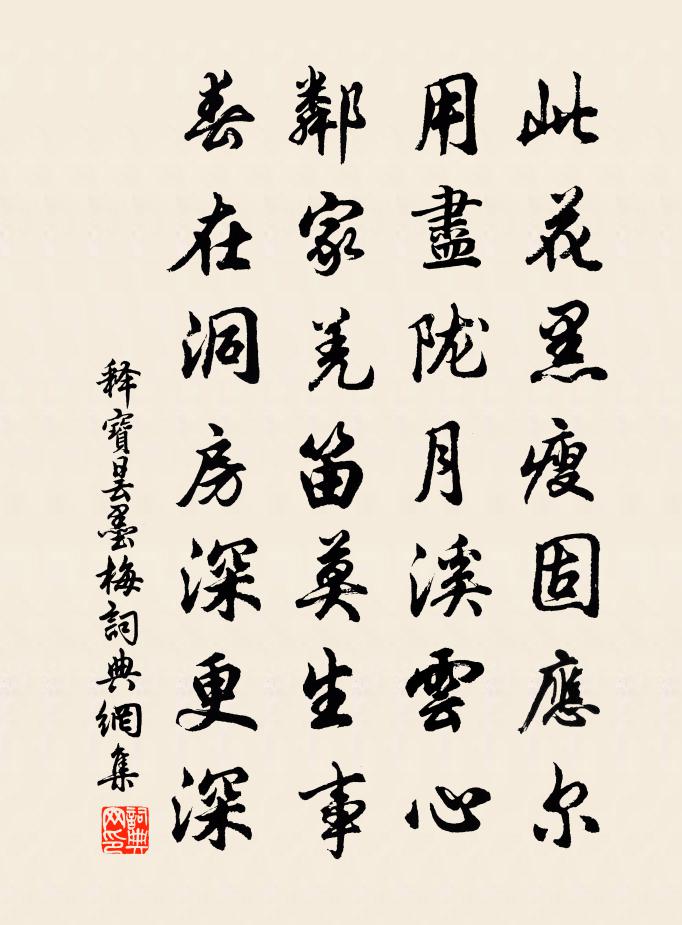 此花黑瘦固應尔
用盡陇月溪雲心
鄰家羌笛莫生事
春在洞房深更深
释寶昙墨梅詞典網集
詞典网印